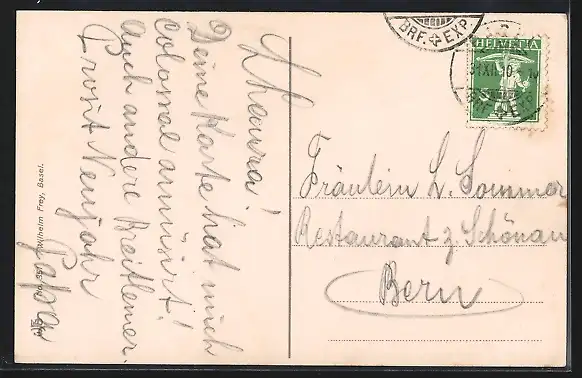 L'hanza!
Deine Karte hat mich
colossal amüsirt!
Auch andere
Prosit Neujahr
Papa
No. 35 Wilhelm Frey, Basel.
BRF. EXP.
HELVETIA
31.XII.10
BRF. EXP.
Fräulein L. Sommer
Restaurant z. Schönau
Bern